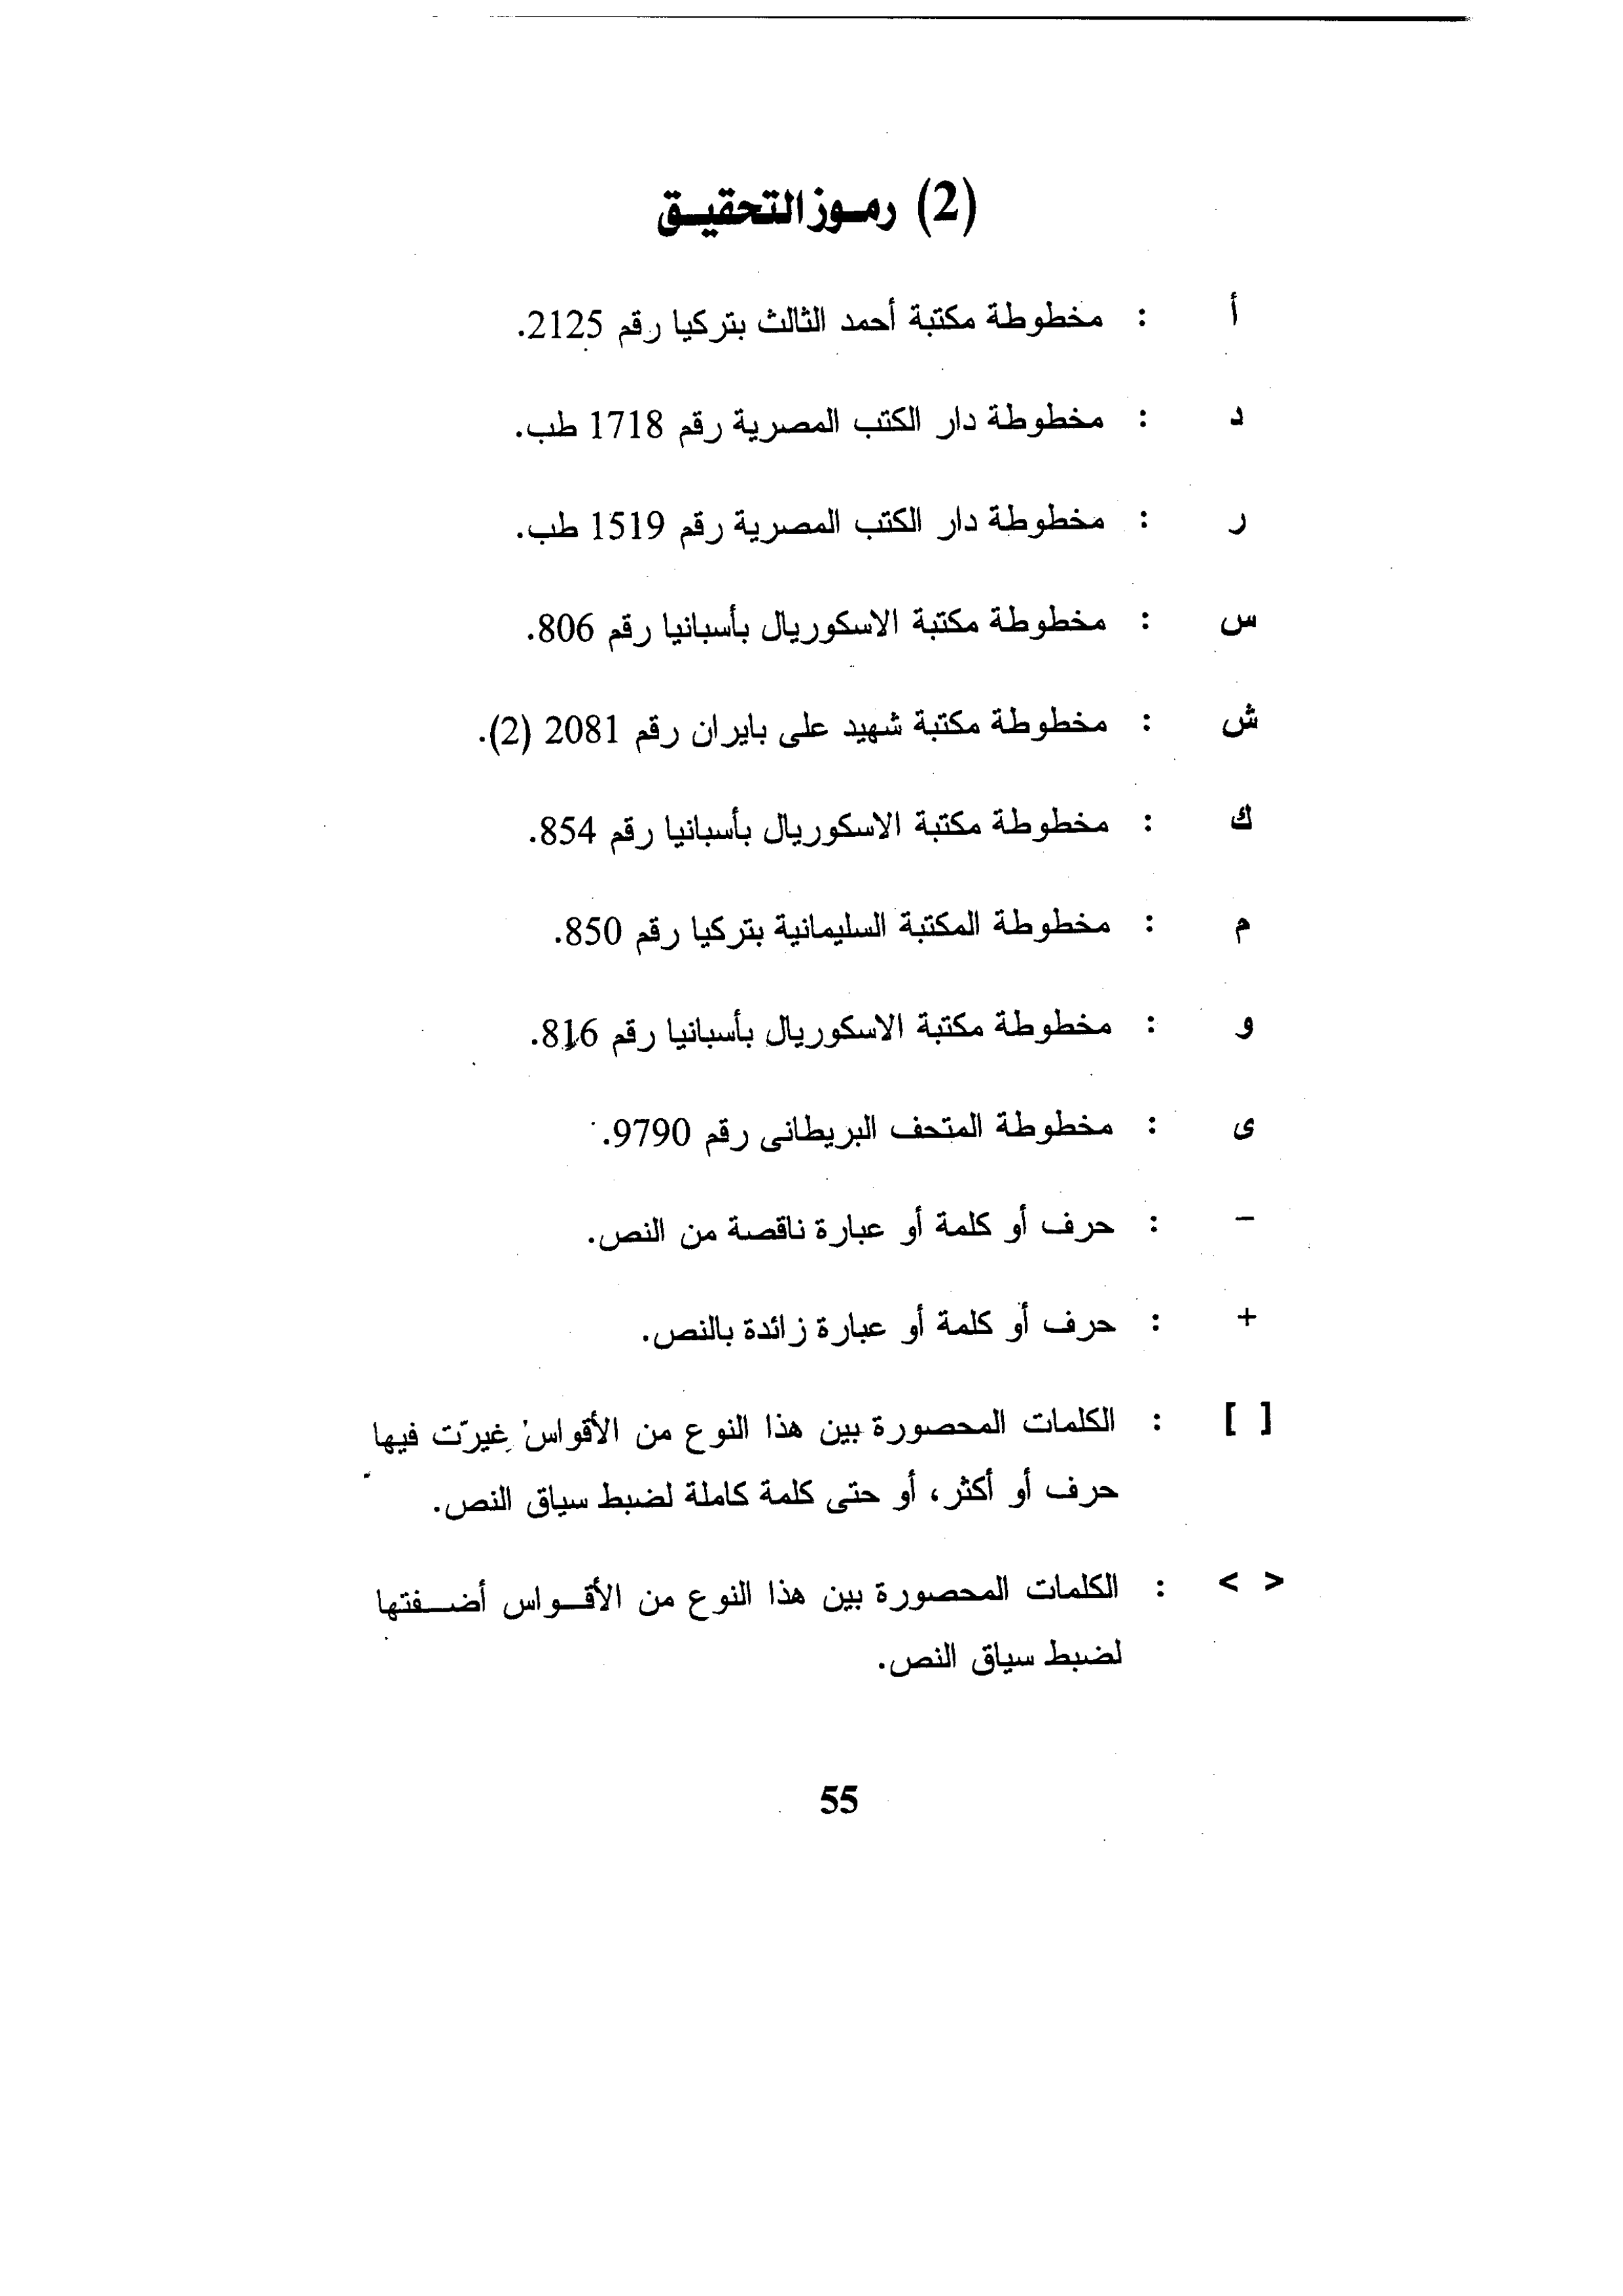 (2) رموز التحقيق
أ : مخطوطة مكتبة أحمد الثالث بتركيا رقم 2125.
د : مخطوطة دار الكتب المصرية رقم 1718 طب.
ر : مخطوطة دار الكتب المصرية رقم 1519 طب.
س : مخطوطة مكتبة الاسكوريال بأسبانيا رقم 806.
ش : مخطوطة مكتبة شهيد على بايران رقم 2081 (2).
ك : مخطوطة مكتبة الاسكوريال بأسبانيا رقم 854.
م : مخطوطة المكتبة السليمانية بتركيا رقم 850.
و : مخطوطة مكتبة الاسكوريال بأسبانيا رقم 816.
ى : مخطوطة المتحف البريطانى رقم 9790.
– : حرف أو كلمة أو عبارة ناقصة من النص.
+ : حرف أو كلمة أو عبارة زائدة بالنص.
[ ] : الكلمات المحصورة بين هذا النوع من الأقواس غيرّت فيها
حرف أو أكثر، أو حتى كلمة كاملة لضبط سياق النص.
< > : الكلمات المحصورة بين هذا النوع من الأقواس أضفتها
لضبط سياق النص.
55